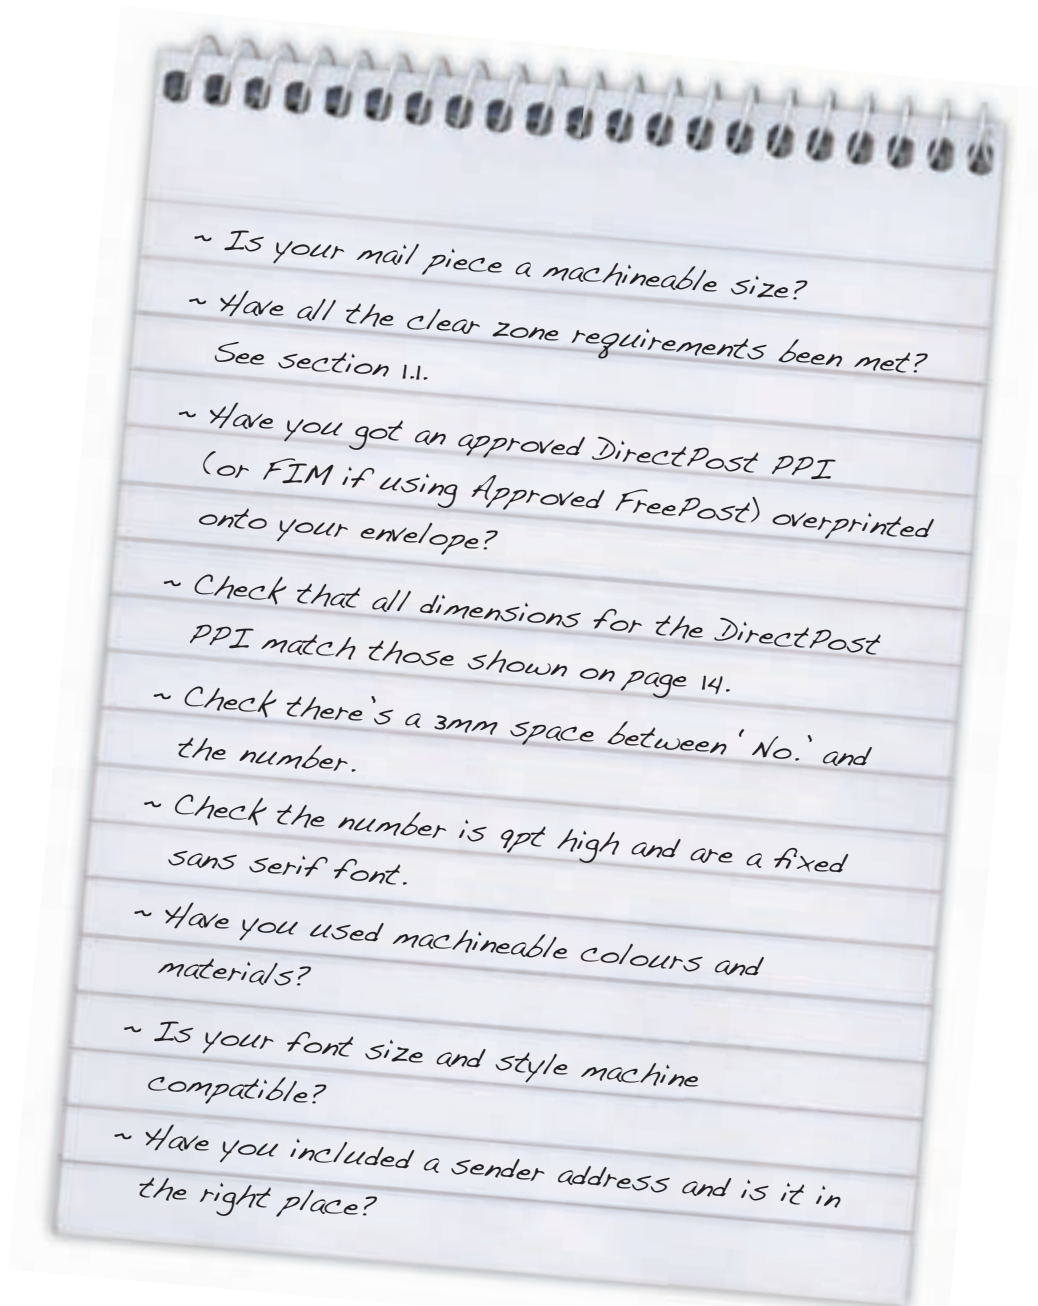 ~ Is your mail piece a machineable size?
~ Have all the clear zone requirements been met?
See section 1.1.
~ Have you got an approved DirectPost PPI
(or FIM if using Approved FreePost) overprinted
onto your envelope?
~ Check that all dimensions for the DirectPost
PPI match those shown on page 14.
~ Check there's a 3mm space between 'No.' and
the number.
~ Check the number is 9pt high and are a fixed
sans serif font.
~ Have you used machineable colours and
materials?
~ Is your font size and style machine
compatible?
~ Have you included a sender address and is it in
the right place?